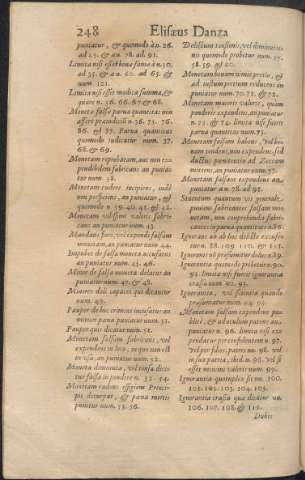 248 Elisæus Danza
puniatur, & quomodo à n. 26.
ad 45. & à n. 78. ad 91.
Limita nisi esset bona fama à n. 30.
ad 35. & à n. 60. ad 63. &
num. 121.
Limita nisi esset modica summa, &
quare n. 36. 66. 67 & 68.
Moneta falsa parua quanticas non
affert præiudiciũ n. 36. 75. 76.
86. & 87. Parua quantitas
quomodo iudicatur num. 37.
68. & 69.
Monetam reprobatam, aut non ex-
pendibilem fabricans an punia-
tur num. 38.
Monetam cudere incipiens, sed
non perficiens, an puniatur, &
quomodo n. 39. 41. 42. & 44.
Monetam vilissimi valoris fabri-
cans an puniatur num. 43.
Mandans fieri, vel expendi falsam
monetam, an puniatur num. 44.
Impubes de falsa moneta accusatus
an puniatur num. 45. 46.
Minor de falsa moneta delatus an
puniatur num. 47. & 48.
Minores doli capaces qui dicantur
num. 49.
Pauper de hoc crimine inquisitus an
mitiori pœna puniatur num. 51.
Pauper quis dicatur num. 51.
Monetam falsam fabricans, vel
expendens in loco, in quo non est
in vsu an puniatur num. 52.
Moneta diminuta, vel tonsa dici-
tur falsa in pondere n. 53. 54.
Monetam radens effigiem Princi-
pis deturpat, & pœna mortis
punitur num. 55. 56.
Delictum tonsionis, vel diminutio-
nis quomodo probetur num. 57.
58. 59. & 60.
Monetam bonam nimis pretio, &
ad iustum pretium reducens an
puniatur num. 70. 71. & 72.
Monetam maioris valoris, quàm
ponderis expendens an puniatur
n. 73. & 74. limita nisi fuerit
parua quantitas num. 75.
Monetam falsam habens, vel bo-
nam tondens, non expendens, sed
ductus pœnitentia ad Zeccam
mittens, an puniatur num. 77.
Monetam falsam expendens an
puniatur à n. 78. ad 91.
Statutum quantumvis generale,
puniens fabricantes falsam mo-
netam, non comprehendit fabri-
cantes in parua quantitate n. 86.
Ignorans an ab hoc delicto excuse-
tur n. 88. 109. 110. & 115.
Ignorantia præsumitur delicto n. 89.
Ignorantia probata in dubio n. 90.
& 91. limita nisi fuerit ignorantia
crassa num. 92. 93.
Ignorantia, vel scientia quando
præsumantur num. 94. 95.
Monetam falsam expendens pu-
blicè, & ad oculum patens an
puniatur n. 96. limita nisi ex-
pendatur per ostensionem n. 97.
vel per filios, patres nu. 98. vel
in sua patria, ibid. n. 98. vel si
esset minimi valoris num. 99.
Ignorantia quotuplex sit nu. 100.
101. 102. 103. 104. 105.
Ignorantia crassa quæ dicatur nu.
106. 107. 108. & 116.
Dubio